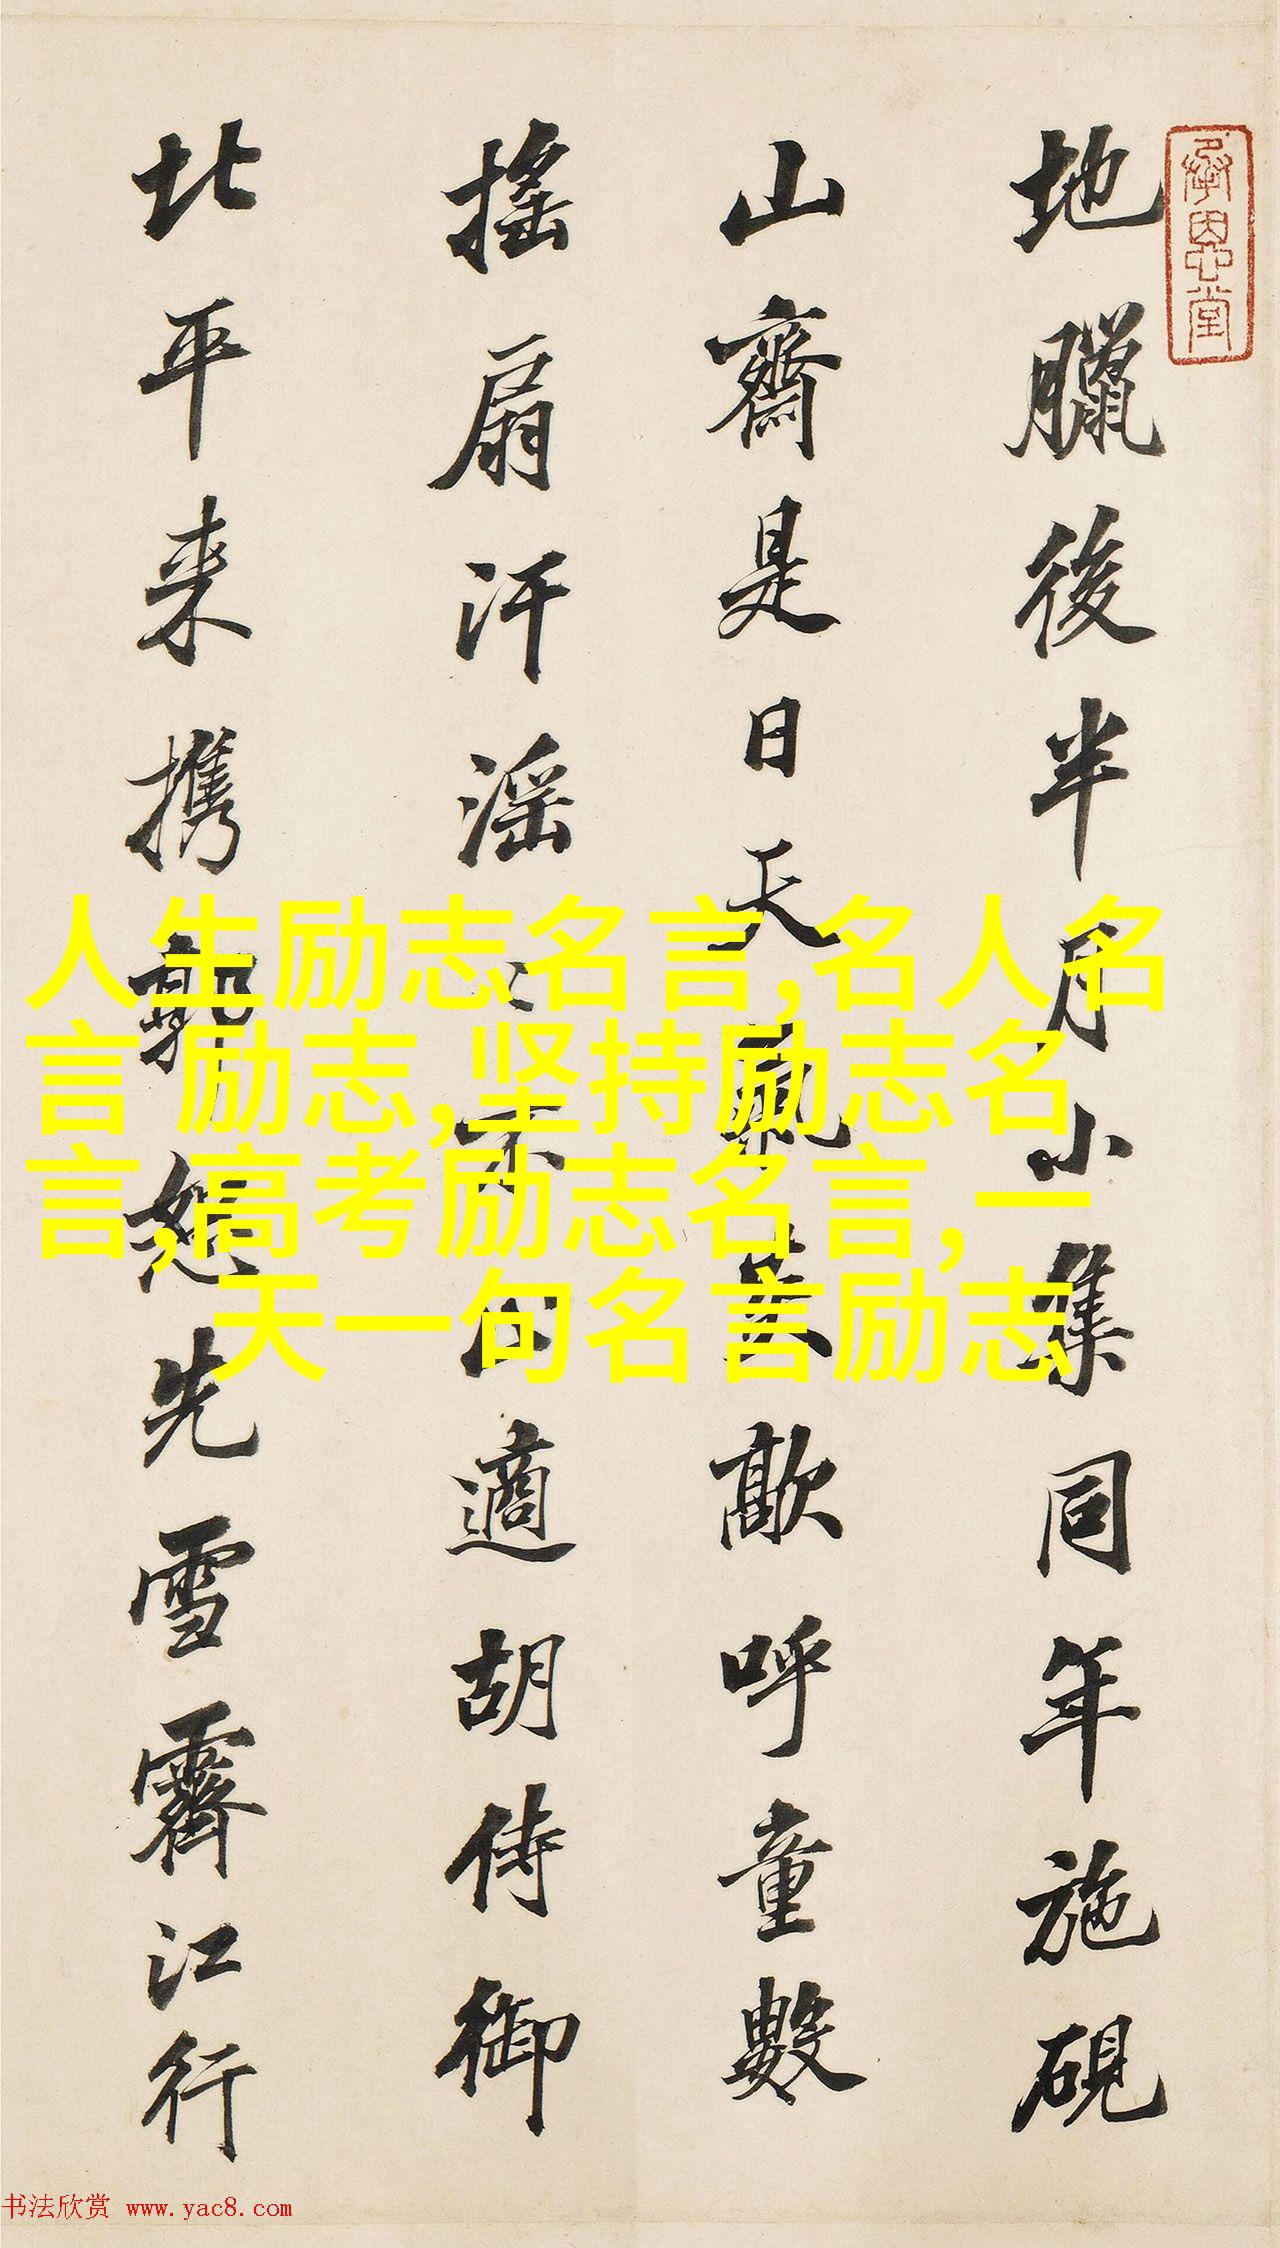 地臘後半月小集同年施硯
山齋是日天氣歊呼童數
搖扇汗滛〻不止適胡侍御
北平来攜郭恕先雪霽江行
承恩堂
人生励志名言,名人名
言 励志,坚持励志名
言,高考励志名言,一
天一句名言励志
书法欣赏 www.yac8.com